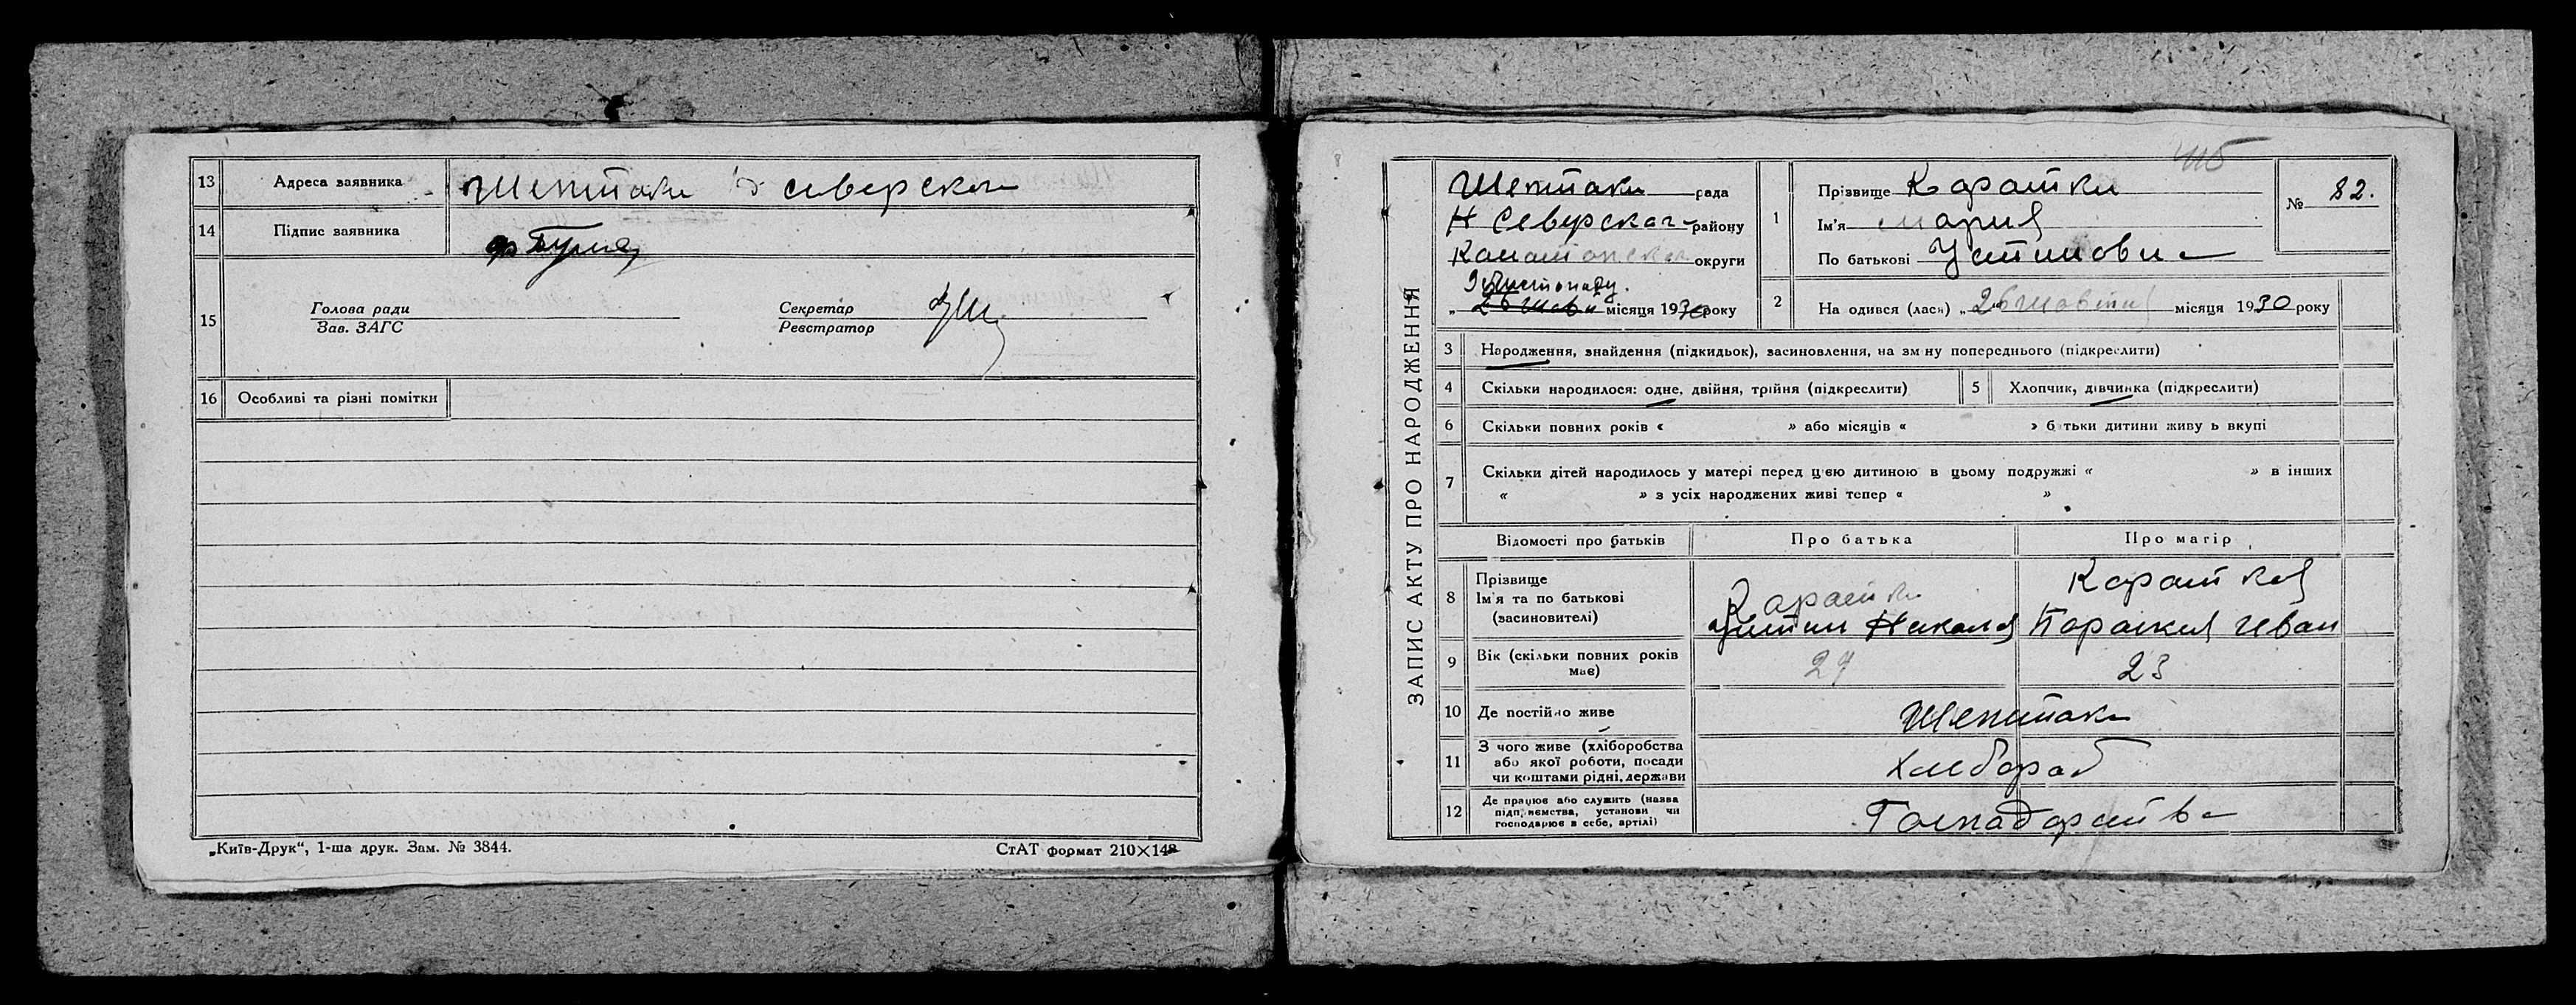 13 Адреса заявника Шептаки Н северского
14 Підпис заявника
15 Голова ради
Зав. ЗАГС
Секретар
Реєстратор
16 Особливі та різні помітки
„Київ-Друк“, 1-ша друк. Зам. № 3844.
СтАТ формат 210×148
ЗАПИС АКТУ ПРО НАРОДЖЕННЯ
Шептаки рада
Н Северског району
округи
Листопаду.
„ місяця 1930 року
1 Прізвище Каратки
Ім'я Мария
По батькові Устиновна
№ 82.
2 На одився (лась) „26 місяця 1930 року
3 Народження, знайдення (підкидьок), засиновлення, на зм ну попереднього (підкреслити)
4 Скільки народилося: одне, двійня, трійня (підкреслити)
5 Хлопчик, дівчинка (підкреслити)
6 Скільки повних років « » або місяців « » б тьки дитини живу ь вкупі
7 Скільки дітей народилось у матері перед цією дитиною в цьому подружжі « » в інших
« » з усіх народжених живі тепер « »
Відомості про батьків Про батька Про матір
8 Прізвище
Ім'я та по батькові
(засиновителі)
Каратки
Устин Никола
Караткая
Параския Иван
9 Вік (скільки повних років має) 27 23
10 Де постійно живе Шептаки
11 З чого живе (хліборобства
або якої роботи, посади
чи коштами рідні, держави
Хлебороб
12 Де працює або служить (назва
підприємства, установи чи
господарює в себе, артілі)
Господарства